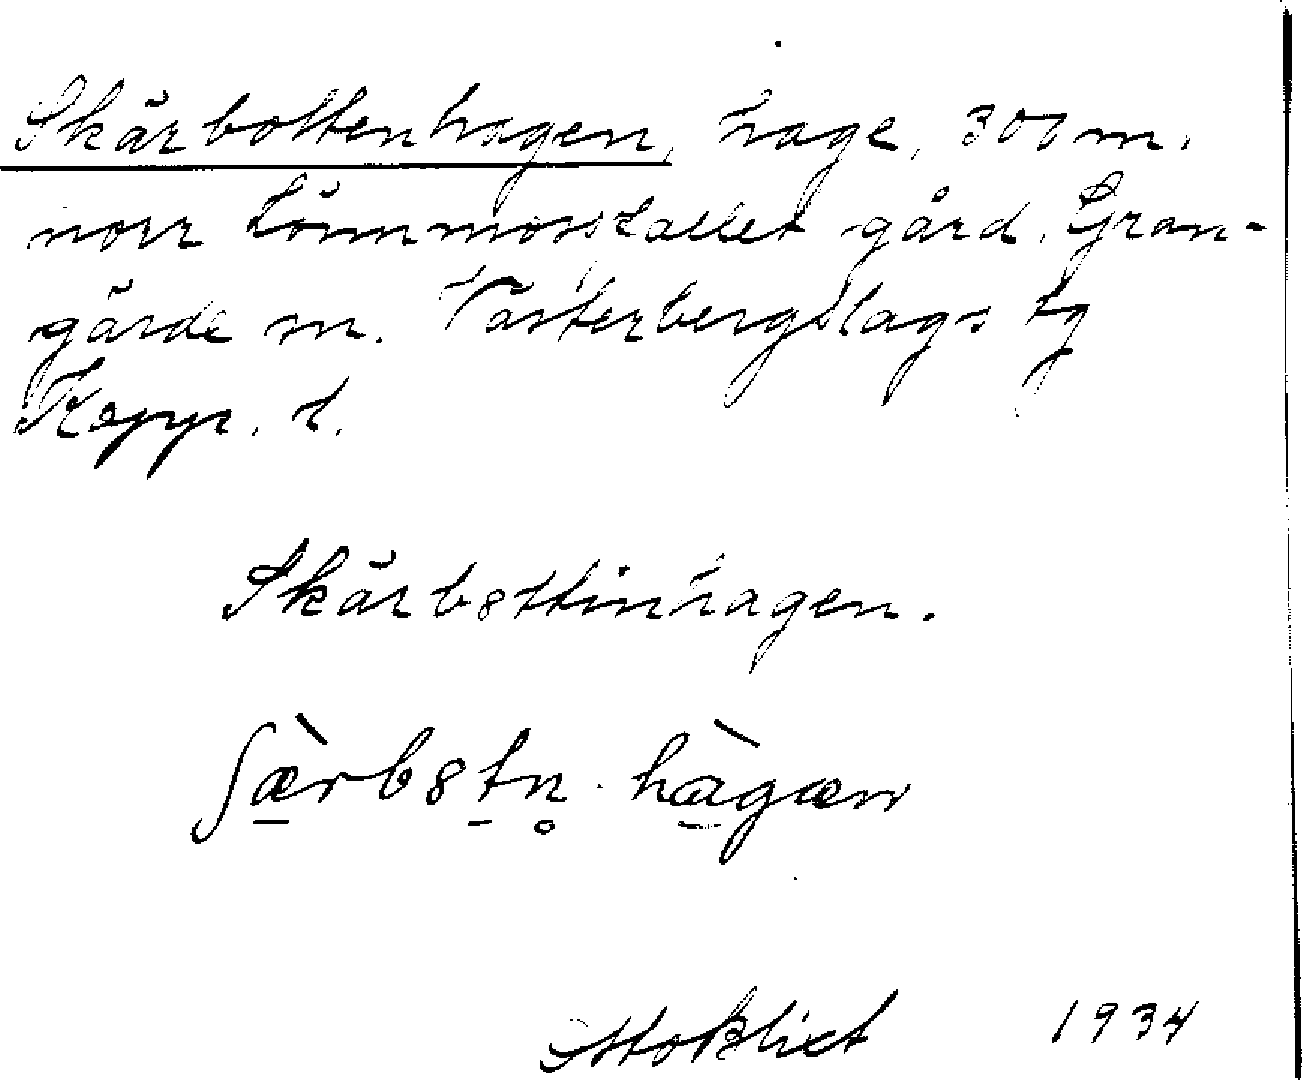 Skärbottenhagen, hage, 300 m.
norr Lönnmosstallet gård, Gran-
gärde sn. Västerbergslags tg
Kopp. l.
Skärbottinhagen.
ʃæ̀rb8tn̥ hàgæn
Otto Blixt 1934